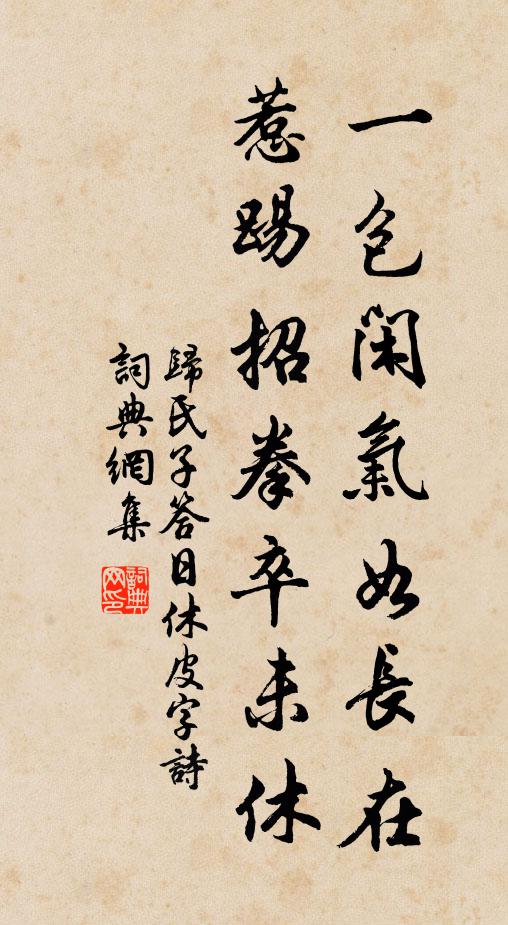 一包閑氣如長在
惹踢招拳卒未休
歸氏子答日休皮字詩
詞典網集
詞典
网印